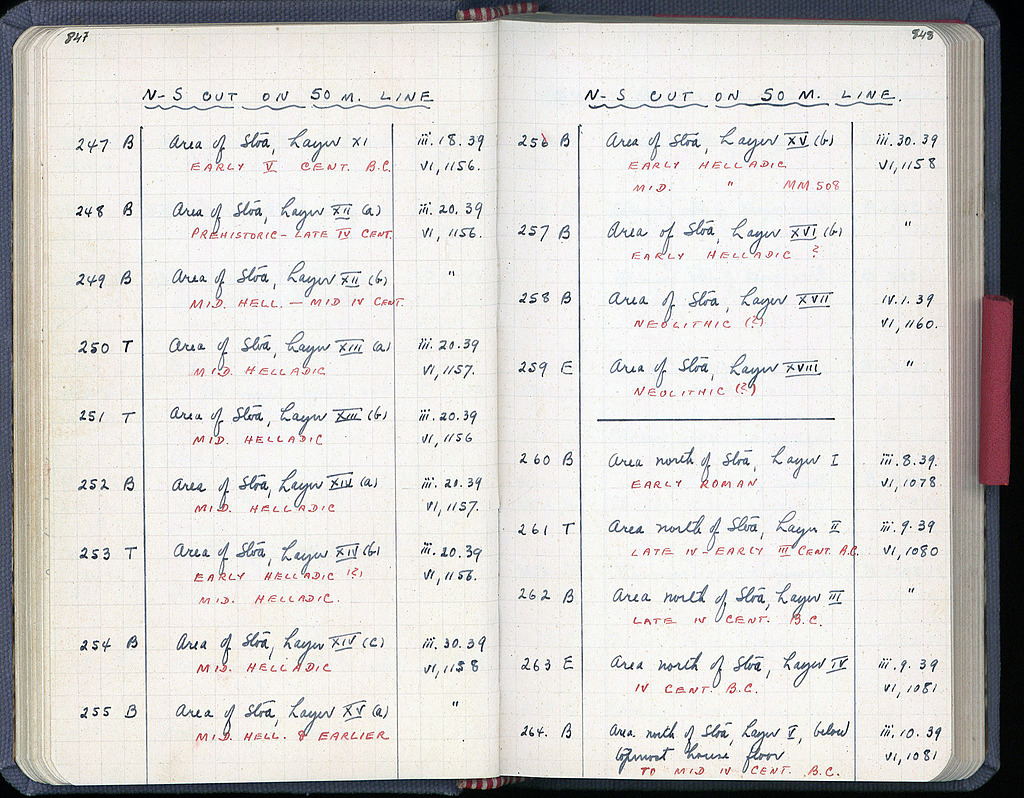 847
N-S CUT ON 50 M. LINE
247 B Area of Stōa, Layer XI iii.18.39
EARLY V CENT. B.C. VI, 1156.
248 B Area of Stōa, Layer XII (a) iii.20.39
PREHISTORIC - LATE IV CENT. VI, 1156.
249 B Area of Stōa, Layer XII (b) "
MID. HELL. - MID IV CENT.
250 T Area of Stōa, Layer XIII (a) iii.20.39
MID. HELLADIC VI, 1157.
251 T Area of Stōa, Layer XIII (b) iii.20.39
MID. HELLADIC VI, 1156
252 B Area of Stōa, Layer XIV (a) iii.20.39
MID. HELLADIC VI, 1157.
253 T Area of Stōa, Layer XIV (b) iii.20.39
EARLY HELLADIC (?) VI, 1156.
MID. HELLADIC.
254 B Area of Stōa, Layer XIV (c) iii.30.39
MID. HELLADIC VI, 1158
255 B Area of Stōa, Layer XV (a) "
MID. HELL. & EARLIER
848
N-S CUT ON 50 M. LINE.
256 B Area of Stōa, Layer XV (b) iii.30.39
EARLY HELLADIC VI, 1158
MID. " MM 508
257 B Area of Stōa, Layer XVI (b) "
EARLY HELLADIC ?
258 B Area of Stōa, Layer XVII IV.1.39
NEOLITHIC (?) VI, 1160.
259 E Area of Stōa, Layer XVIII "
NEOLITHIC (?)
260 B Area north of Stōa, Layer I iii.8.39.
EARLY ROMAN VI, 1078
261 T Area north of Stōa, Layer II iii.9.39
LATE IV - EARLY III CENT. B.C. VI, 1080
262 B Area north of Stōa, Layer III "
LATE IV CENT. B.C.
263 E Area north of Stōa, Layer IV iii.9.39
IV CENT. B.C. VI, 1081
264. B Area north of Stōa, Layer V, below iii.10.39
topmost house floor VI, 1081
TO MID IV CENT. B.C.